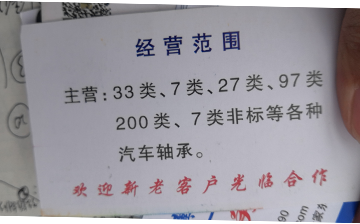 经营范围
主营:33类、7类、27类、97类
200类、7类非标等各种
汽车轴承。
欢迎新老客户光临合作